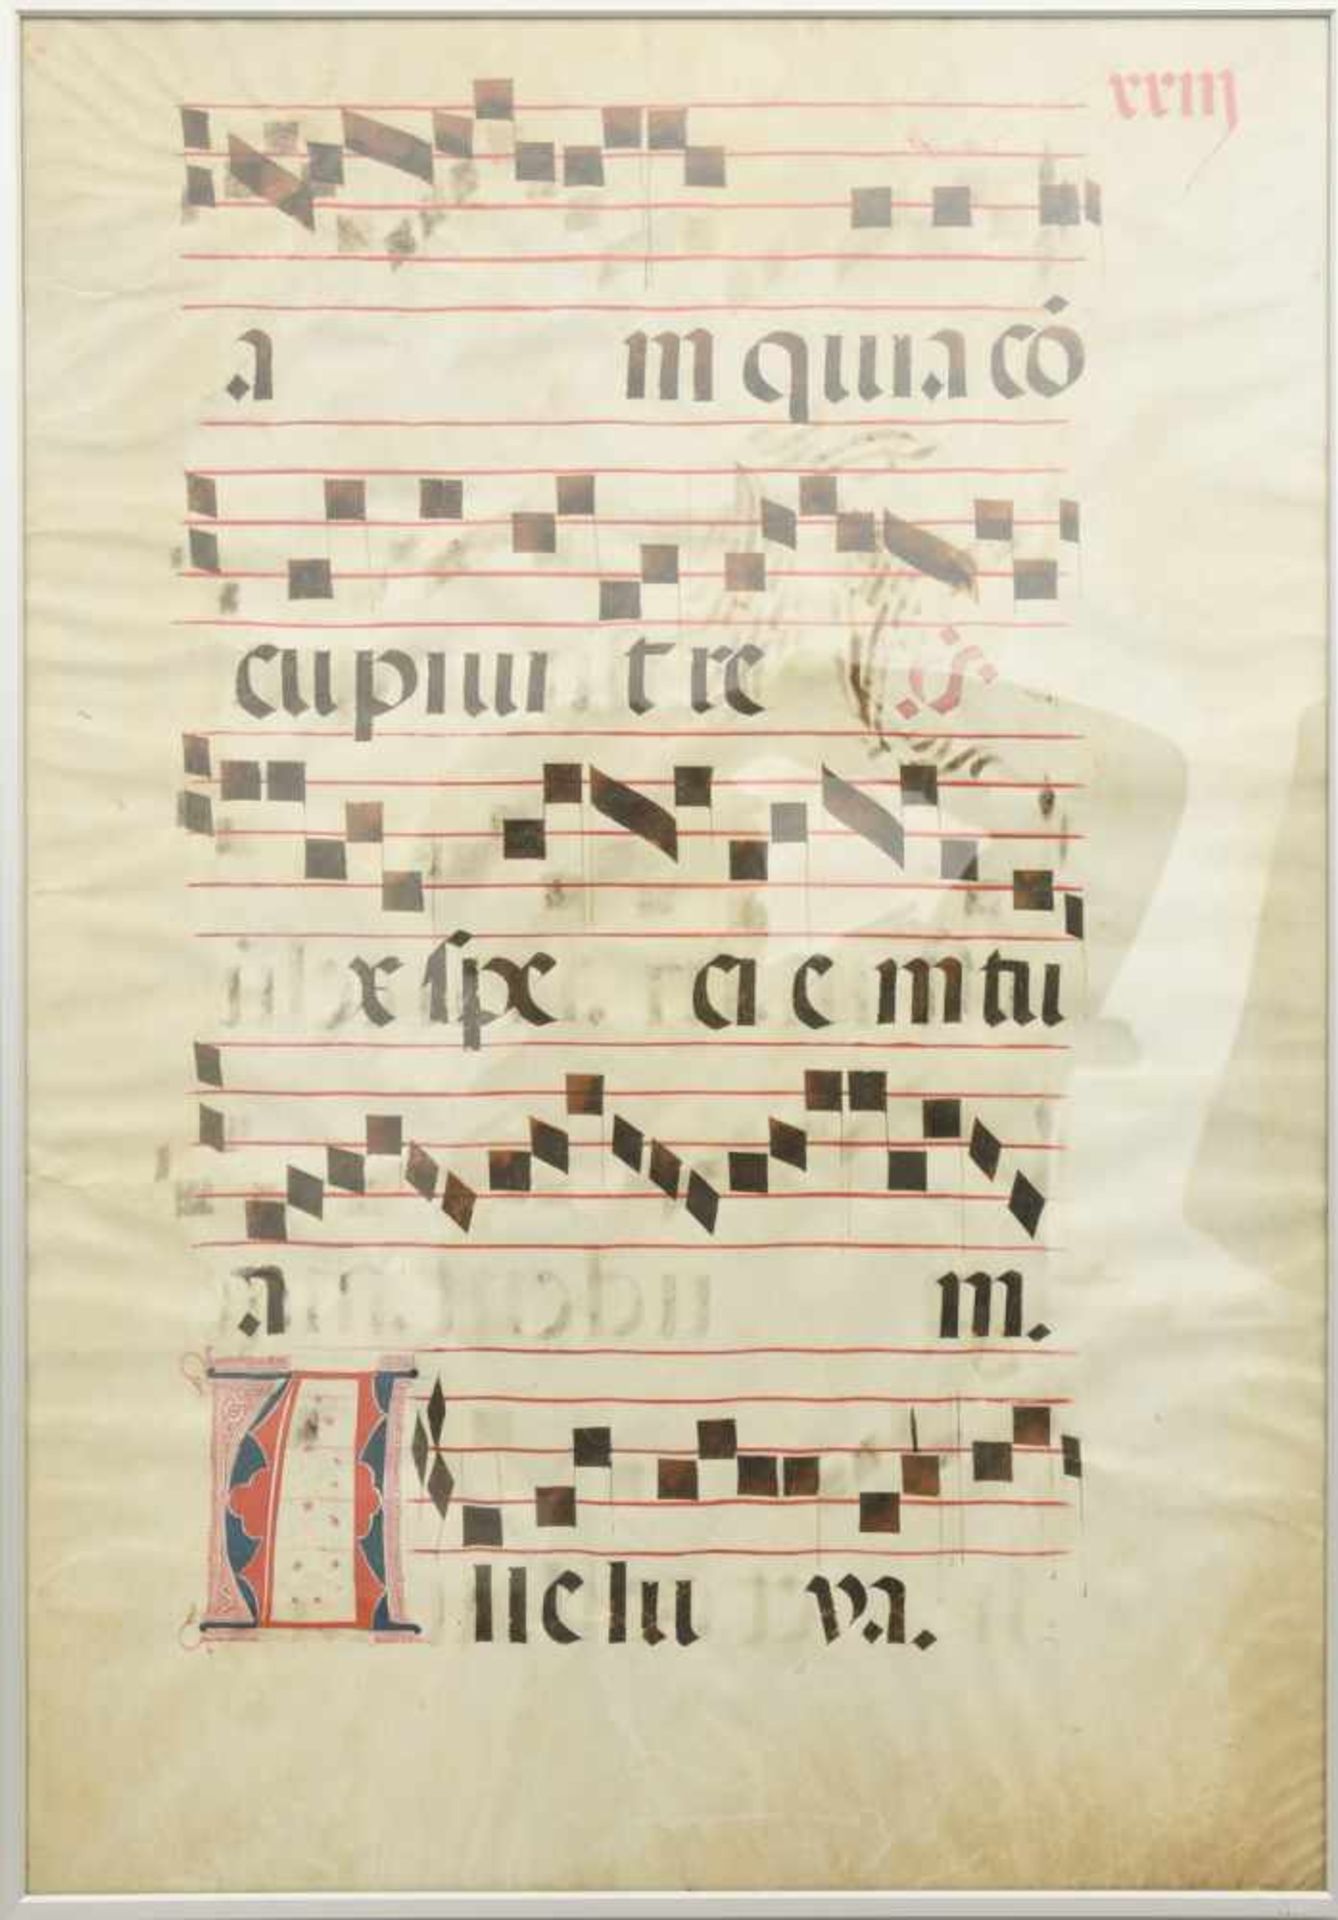 xxiij
a m quia có
cupiui t re .S.
x spe ci e m tu
a m.
A lle lu ya.